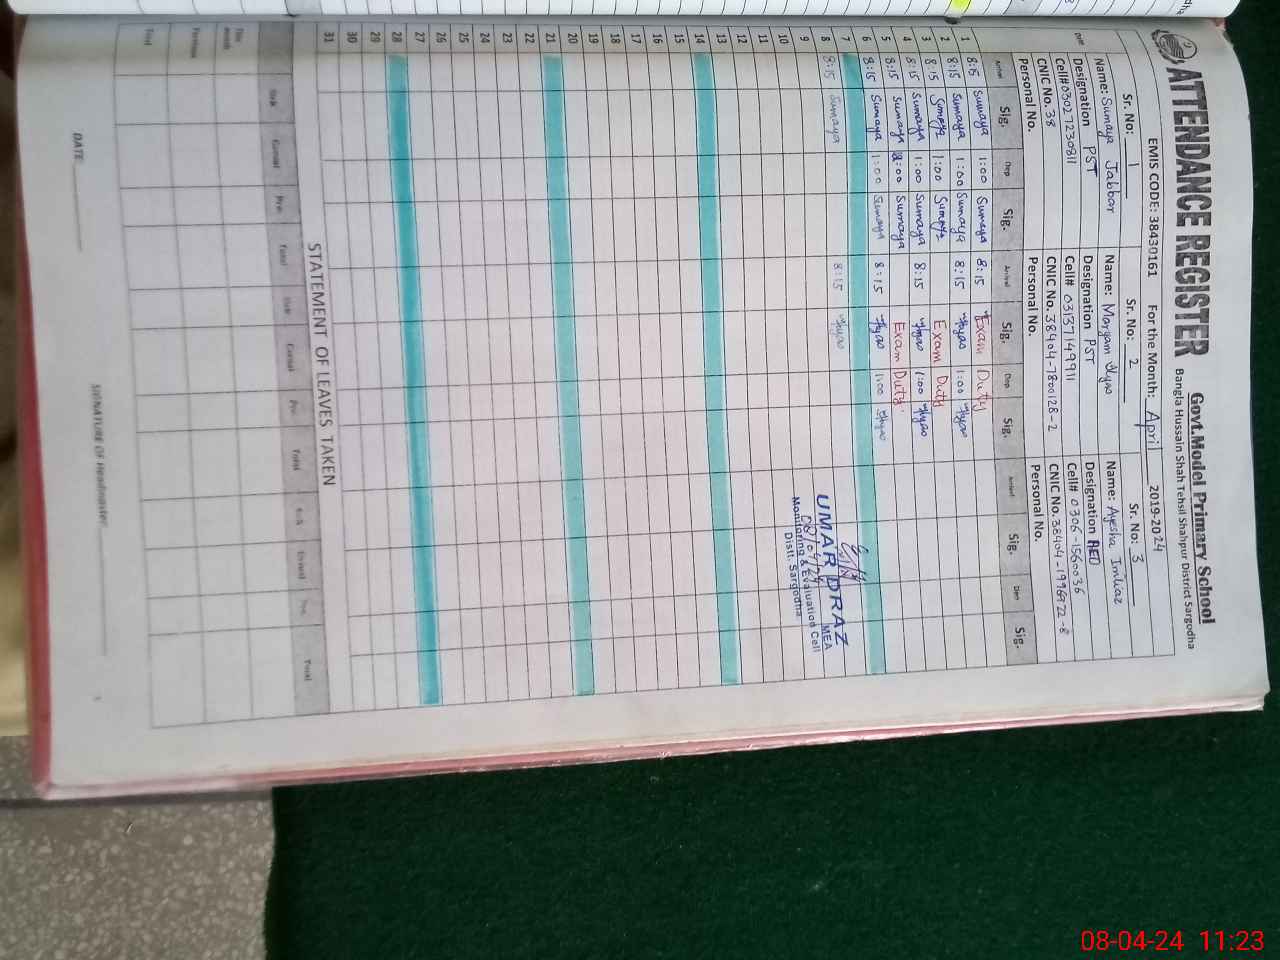 ATTENDANCE REGISTER
Govt.Model Primary School
Bangla Hussain Shah Tehsil Shahpur District Sargodha
EMIS CODE: 38430161 For the Month: April 2019-2024
Sr. No: 1 Sr. No: 2 Sr. No: 3
Name: Sumaya Jabbar Name: Maryam Ilyas Name: Ayesha Imtiaz
Designation PST Designation PST Designation AEO
Cell#03027230811 Cell# 03137149911 Cell# 0306-1560036
CNIC No. 38 CNIC No. 38404-7800128-2 CNIC No. 38404-1996722-8
Personal No. Personal No. Personal No.
Date Arrival Sig. Dep Sig. Arrival Sig. Dep Sig. Arrival Sig. Dep Sig.
1 8:15 Sumaya 1:00 Sumaya 8:15 Exam Duty
2 8:15 Sumaya 1:00 Sumaya 8:15 Ilyas 1:00 Ilyas
3 8:15 Sumaya 1:00 Sumaya Exam Duty
4 8:15 Sumaya 1:00 Sumaya 8:15 Ilyas 1:00 Ilyas
5 8:15 Sumaya 1:00 Sumaya Exam Duty
6 8:15 Sumaya 1:00 Sumaya 8:15 Ilyas 1:00 Ilyas
7
8 8:15 Sumaya 8:15 Ilyas
UMAR DRAZ
MEA
08/04/24
Monitoring & Evaluation Cell
Distt. Sargodha
9
10
11
12
13
14
15
16
17
18
19
20
21
22
23
24
25
26
27
28
29
30
31
STATEMENT OF LEAVES TAKEN
Sick Casual Pre. Total Sick Casual Pre. Total Sick Casual Pre. Total
This month
Previous
Total
DATE:
SIGNATURE OF Headmaster
08-04-24 11:23